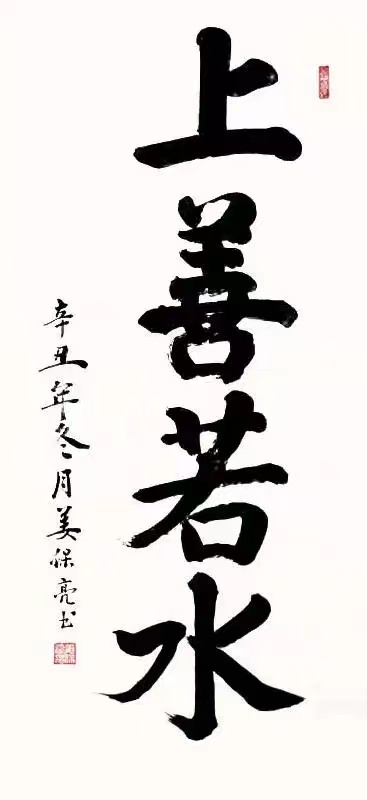 上善若水
辛丑年冬月姜保亮书